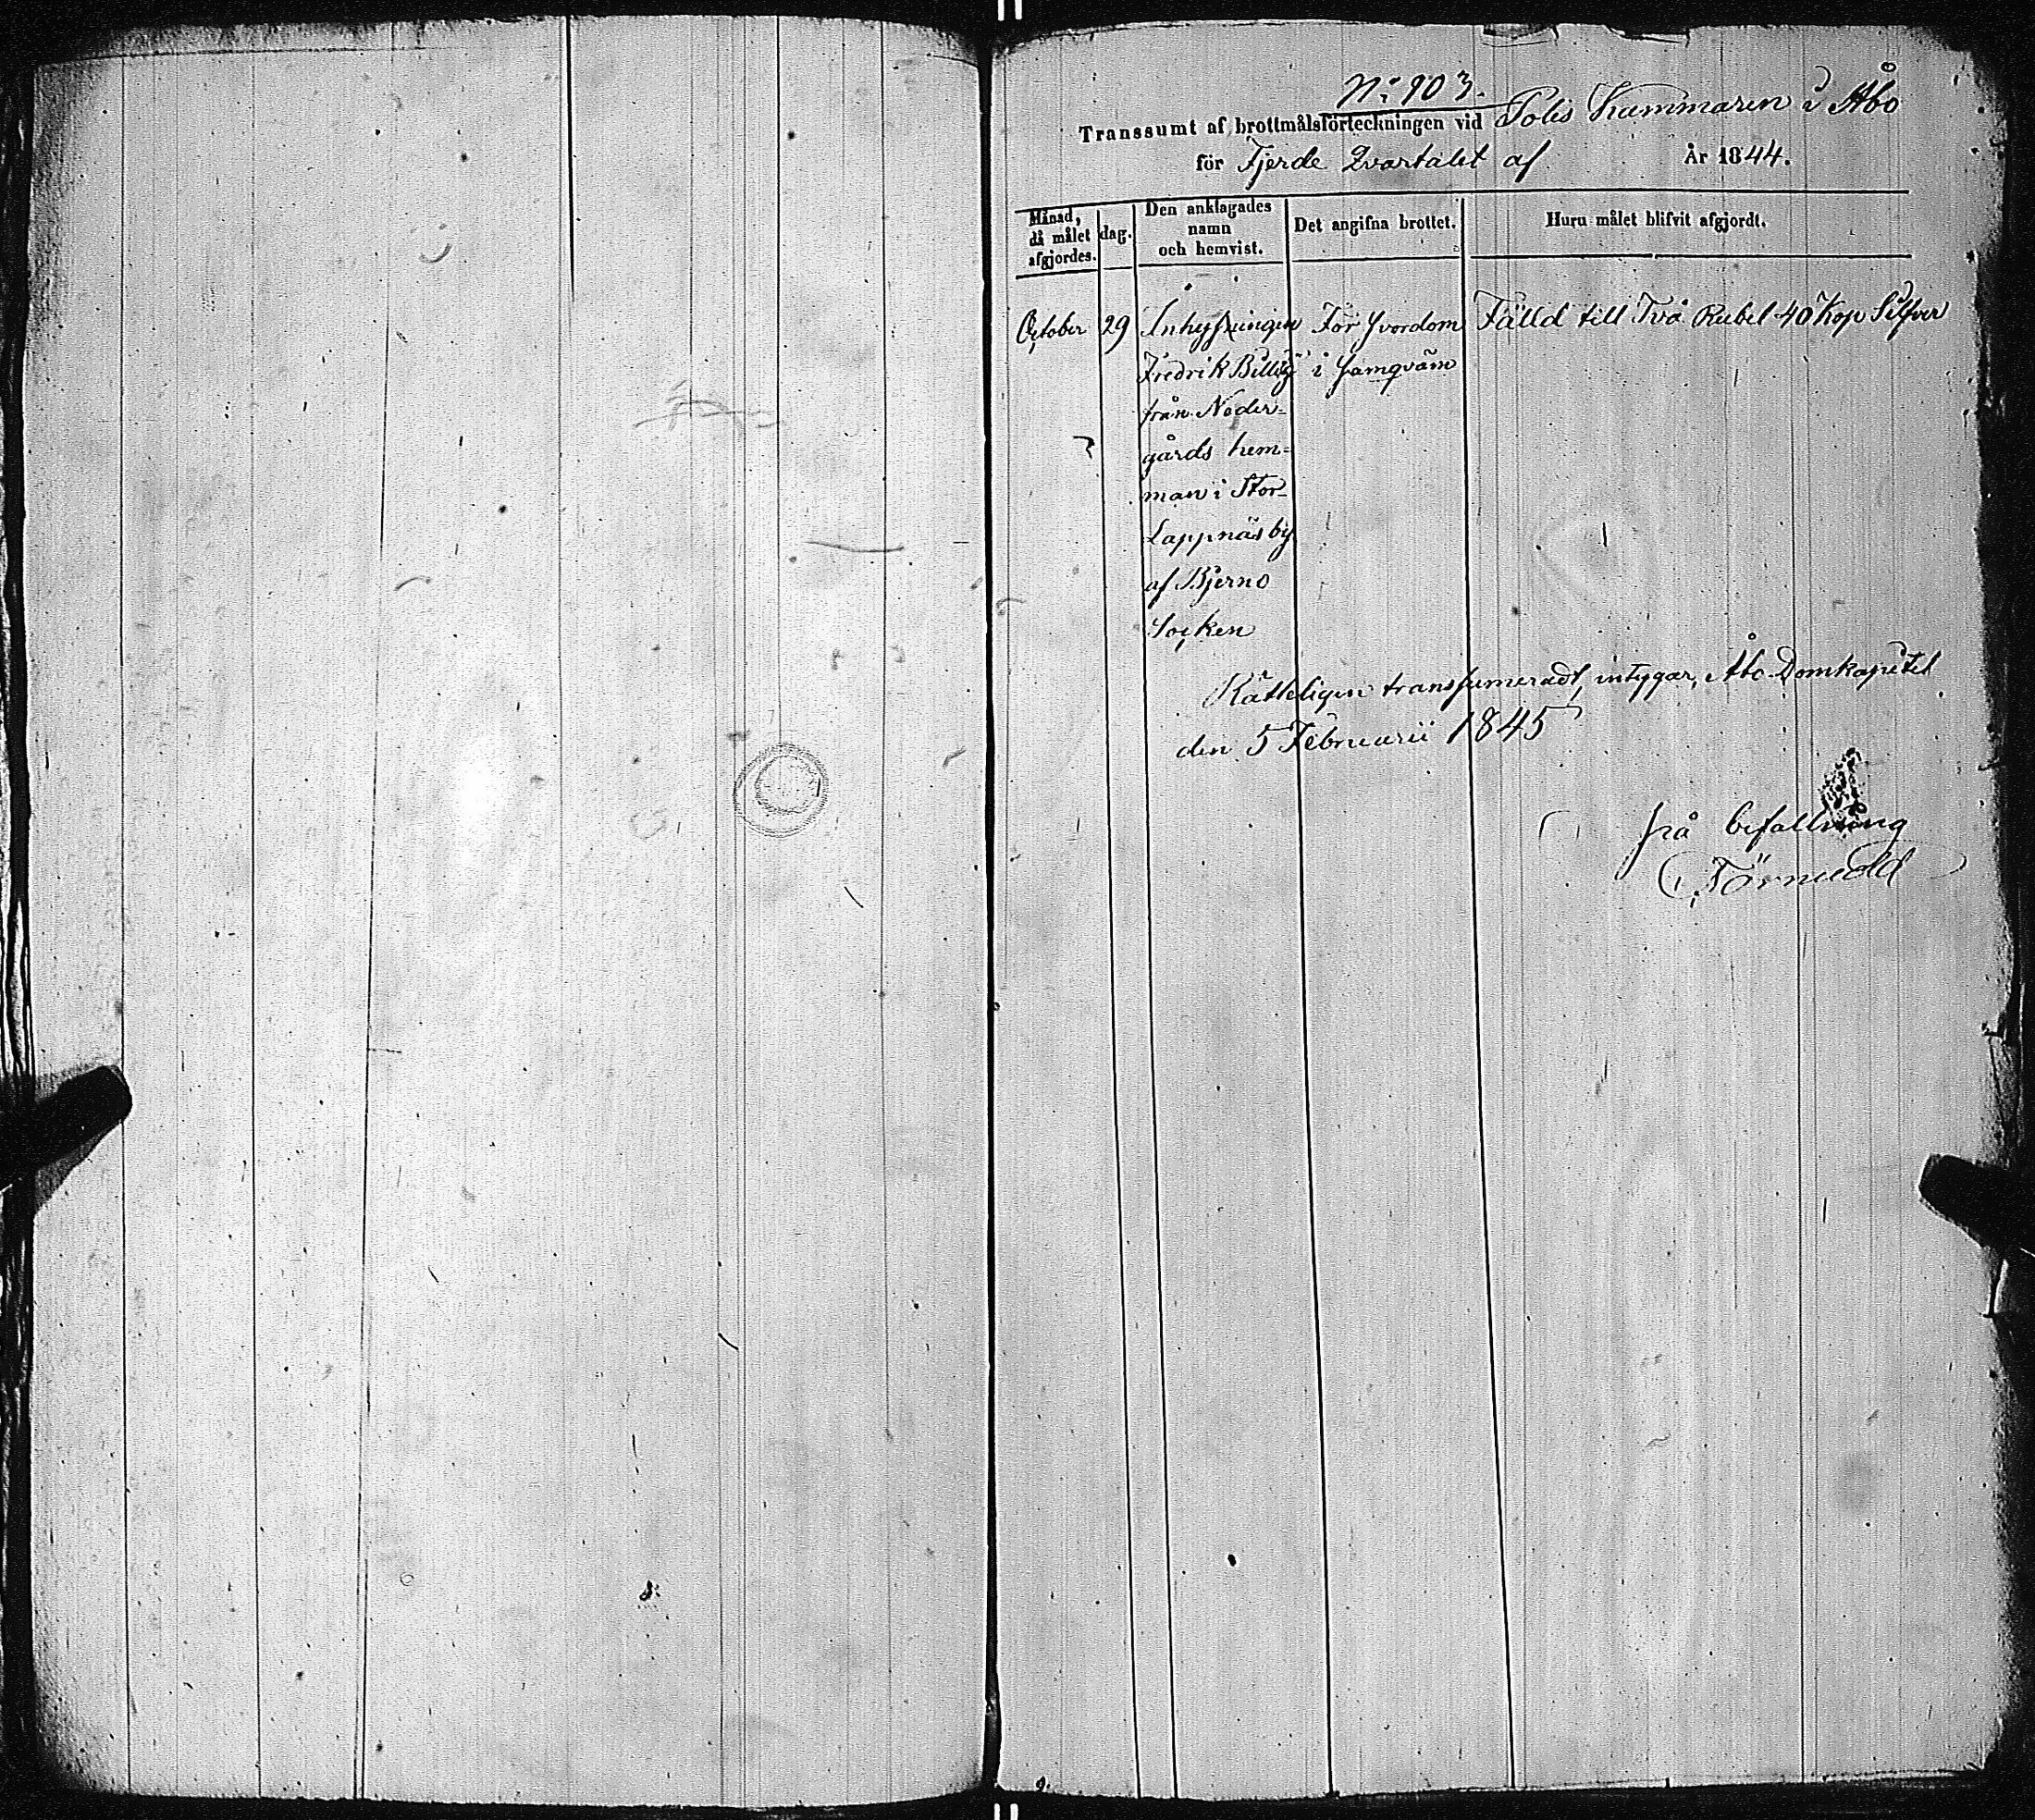 N:o 903.
Transsumt af brottmålsförteckningen vid Polis Kammaren i Åbo
för Fjerde Qvartalet af År 1844.
Månad, då målet afgjordes. dag. Den anklagades namn och hemvist. Det angifna brottet. Huru målet blifvit afgjordt.
October 29 Inhysningen För Svordom Fälld till Två Rubel 40 Kop Silfver
Fredrik Billig i Samqväm
från Neder-
gårds hem-
man i Stor-
Lappnäs by
af Bjerno
Socken
Rätteligen transsumeradt, intygar, Åbo Domkapitel
den 5 Februarii 1845
på befallning
Törnudd